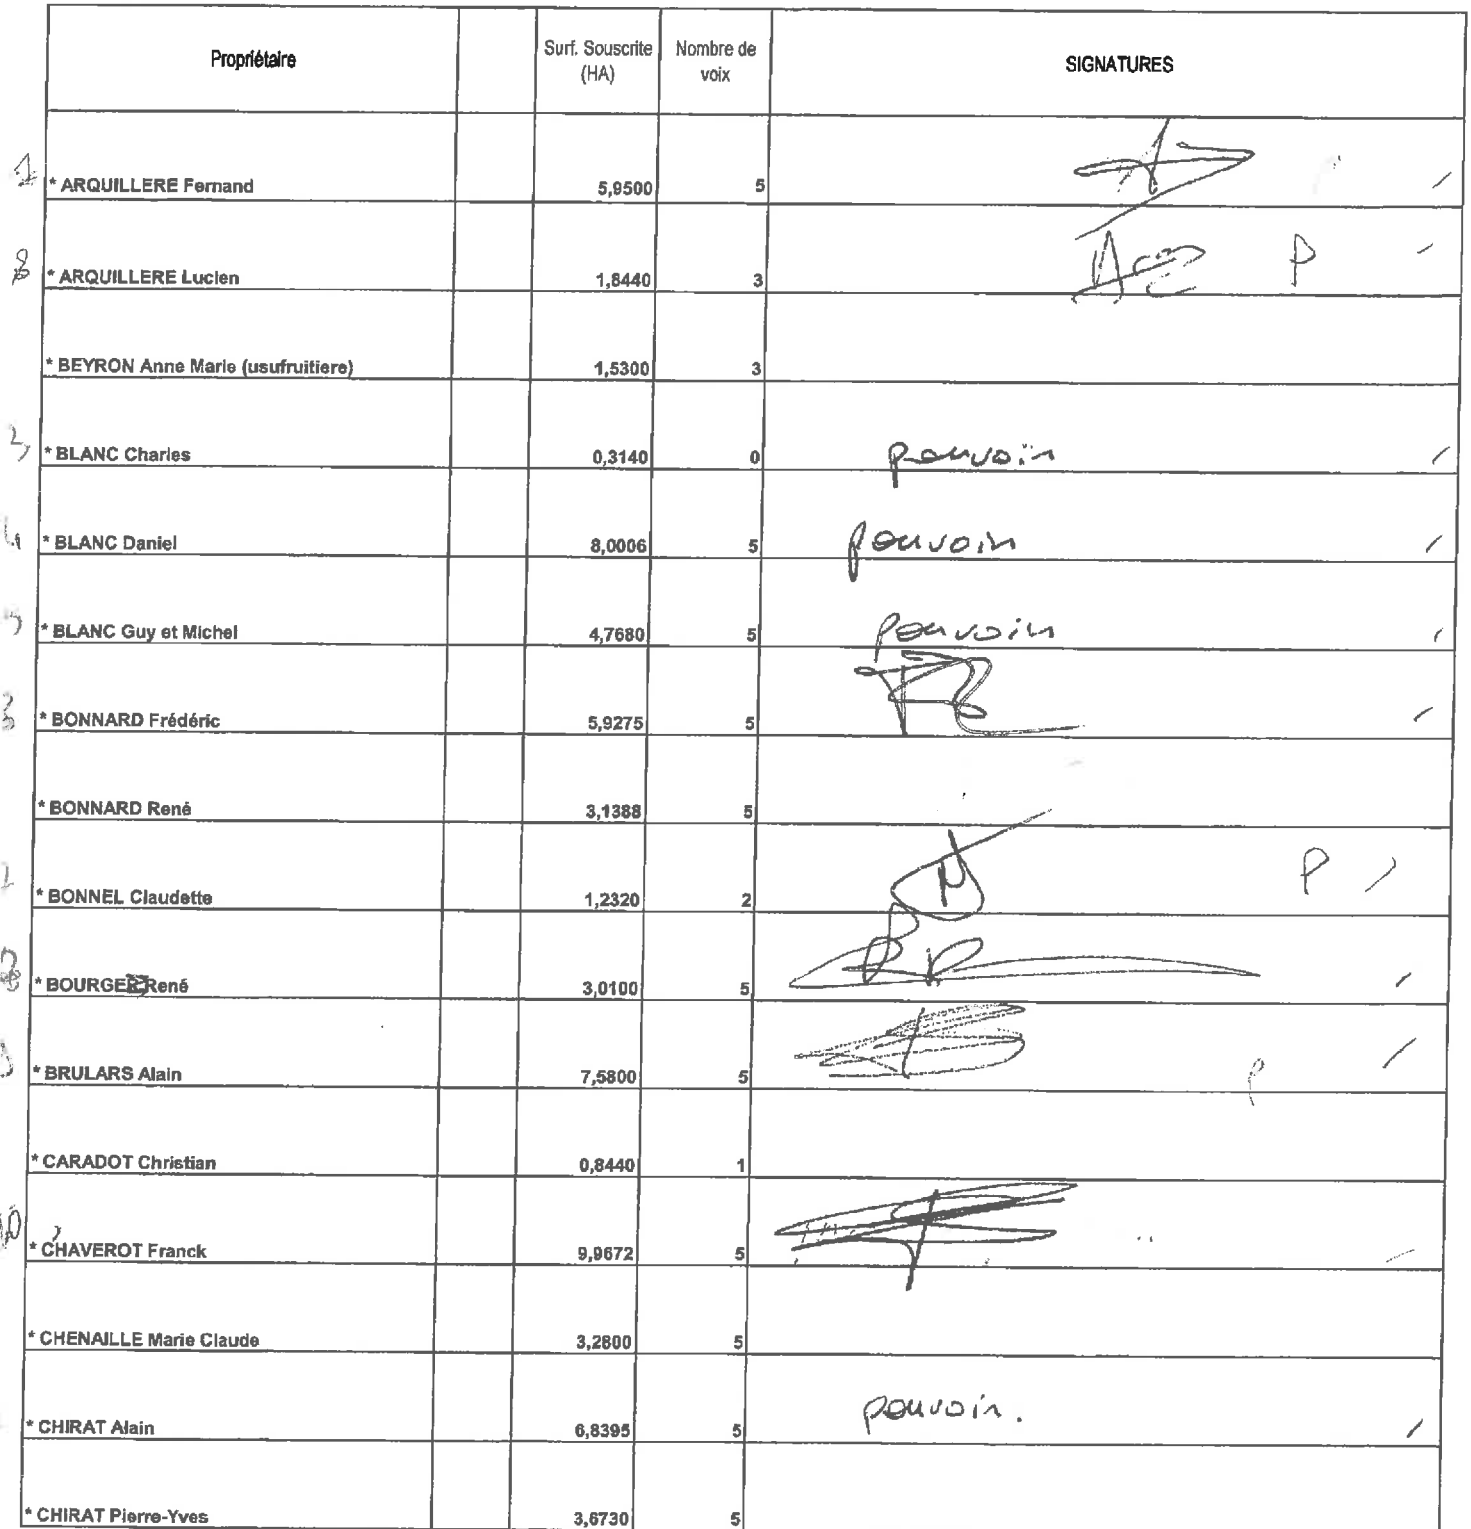 Propriétaire Surf. Souscrite (HA) Nombre de voix SIGNATURES
* ARQUILLERE Fernand 5,9500 5
* ARQUILLERE Lucien 1,8440 3 P
* BEYRON Anne Marie (usufruitiere) 1,5300 3
* BLANC Charles 0,3140 0 pouvoir
4 * BLANC Daniel 8,0006 5 pouvoir
* BLANC Guy et Michel 4,7680 5 pouvoir
* BONNARD Frédéric 5,9275 5
* BONNARD René 3,1388 5
* BONNEL Claudette 1,2320 2 P
* BOURGE René 3,0100 5
* BRULARS Alain 7,5800 5 P
* CARADOT Christian 0,8440 1
10 * CHAVEROT Franck 9,9672 5
* CHENAILLE Marie Claude 3,2800 5
* CHIRAT Alain 6,8395 5 pouvoir.
* CHIRAT Pierre-Yves 3,6730 5